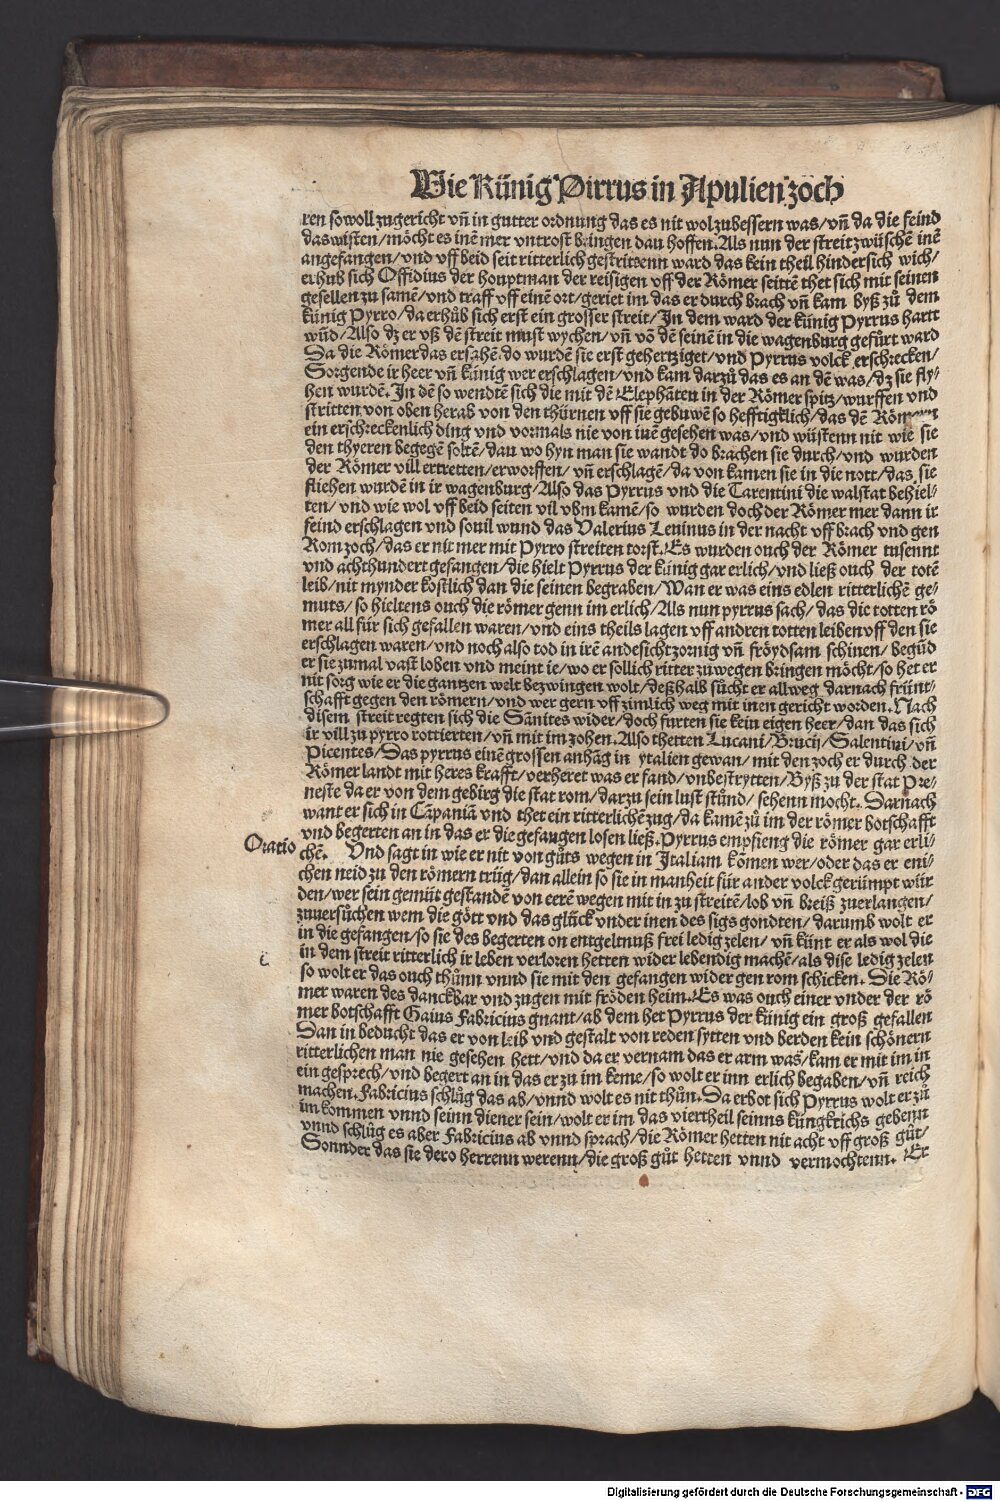 Wie Künig Pirrus in Apulien zoch
ren so woll zugericht vñ in gutter ordnung das es nit wol zubessern was/vñ da die feind
das wisten/möcht es inẽ mer vntrost bringen dan hoffen. Als nun der streit zwüschẽ inẽ
angefangen/vnd vff beid seit ritterlich gestrittenn ward das kein theil hindersich wich/
erhub sich Offidius der houptman der reisigen vff der Römer seittẽ thet sich mit seinen
gesellen zu samẽ/vnd traff vff einẽ ort/geriet im das er durch brach vñ kam byß zů dem
künig Pyrro/da erhůb sich erst ein grosser streit/In dem ward der künig Pyrrus hartt
wũd/Also dz er vß dẽ streit must wychen/vñ võ dẽ seinẽ in die wagenburg gefürt ward
Da die Römer das ersahẽ do wurdẽ sie erst gehertziget/vnd Pyrrus volck erschrecken/
Sorgende ir heer vñ künig wer erschlagen/vnd kam darzů das es an dẽ was/dz sie fly⸗
hen wurdẽ. In dẽ so wendtẽ sich die mit dẽ Elephãten in der Römer spitz/wurffen vnd
stritten von oben herab von den thürnen vff sie gebuwẽ so hefftigklich/das dẽ Römern
ein erschreckenlich ding vnd vormals nie von inẽ gesehen was/vnd wüstenn nit wie sie
den thyeren begegẽ soltẽ/dan wo hyn man sie wandt do brachen sie durch/vnd wurden
der Römer vill ertretten/erworffen/ vñ erschlagẽ/da von kamen sie in die nott/das sie
fliehen wurdẽ in ir wagenburg/Also das Pyrrus vnd die Tarentini die walstat behiel⸗
ten/vnd wie wol vff beid seiten vil vbm kamẽ/so wurden doch der Römer mer dann ir
feind erschlagen vnd souil wund das Valerius Leuinus in der nacht vff brach vnd gen
Rom zoch/das er nit mer mit Pyrro streiten torst. Es wurden ouch der Römer tusennt
vnd achthundert gefangen/die hielt Pyrrus der künig gar erlich/vnd ließ ouch der totẽ
leib/nit mynder köstlich dan die seinen begraben/Wan er was eins edlen ritterlichẽ ge⸗
muts/so hieltens ouch die römer genn im erlich/Als nun pyrrus sach/das die totten rö
mer all für sich gefallen waren/vnd eins theils lagen vff andren totten leiben vff den sie
erschlagen waren/vnd noch also tod in irẽ andesicht zornig vñ fröydsam schinen/begũd
er sie zumal vast loben vnd meint ie/wo er sollich ritter zuwegen bringen möcht/so het er
nit sorg wie er die gantzen welt bezwingen wolt/deßhalb sůcht er allweg darnach frünt⸗
schafft gegen den römern/vnd wer gern vff zimlich weg mit inen gericht worden. Nach
disem streit regten sich die Sãnites wider/doch furten sie kein eigen heer/dan das sich
ir vill zu pyrro rottierten/vñ mit im zohen. Also thetten Lucani/Brucij/Salentini/vñ
Picentes/Das pyrrus einẽ grossen anhãg in ytalien gewan/mit den zoch er durch der
Römer landt mit heres krafft/verheret was er fand/vnbestrytten/Byß zu der stat Pre⸗
neste da er von dem gebirg die stat rom/darzu sein lust stůnd/ sehenn mocht. Darnach
want er sich in Cãpaniã vnd thet ein ritterlichẽ zug/da kamẽ zů im der römer botschafft
vnd begerten an in das er die gefangen losen ließ. Pyrrus empfieng die römer gar erli⸗
Oratio
chẽ. Vnd sagt in wie er nit von gůts wegen in Italiam kömen wer/oder das er eni⸗
chen neid zu den römern trüg/dan allein so sie in manheit für ander volck gerümpt wür
den/wer sein gemüt gestandẽ von eerẽ wegen mit in zu streitẽ/lob vñ breiß zuerlangen/
zuuersůchen wem die gött vnd das glück vnder inen des sigs gondten/ darumb wolt er
in die gefangen/so sie des begerten on entgeltnuß frei ledig zelen/ vñ künt er als wol die
in dem streit ritterlich ir leben verloren hetten wider lebendig machẽ/als dise ledig zelen
so wolt er das ouch thůnn vnnd sie mit den gefangen wider gen rom schicken. Die Rö⸗
mer waren des danckbar vnd zugen mit fröden heim. Es was ouch einer vnder der rö
mer botschafft Gaius Fabricius gnant/ab dem het Pyrrus der künig ein groß gefallen
Dan in beducht das er von leib vnd gestalt von reden sytten vnd berden kein schönern
ritterlichen man nie gesehen hett/vnd da er vernam das er arm was/kam er mit im in
ein gesprech/vnd begert an in das er zu im keme/so wolt er inn erlich begaben/vñ reich
machen. Fabricius schlůg das ab/vnnd wolt es nit thůn. Da erbot sich Pyrrus wolt er zů
im kommen vnnd seinn diener sein/wolt er im das viertheil seinns küngkrichs gebenn
vnnd schlůg es aber Fabricius ab vnnd sprach/die Römer hetten nit acht vff groß gůt/
Sonnder das sie dero herrenn werenn/die groß gůt hetten vnnd vermochtenn. Er
Digitalisierung gefördert durch die Deutsche Forschungsgemeinschaft - DFG